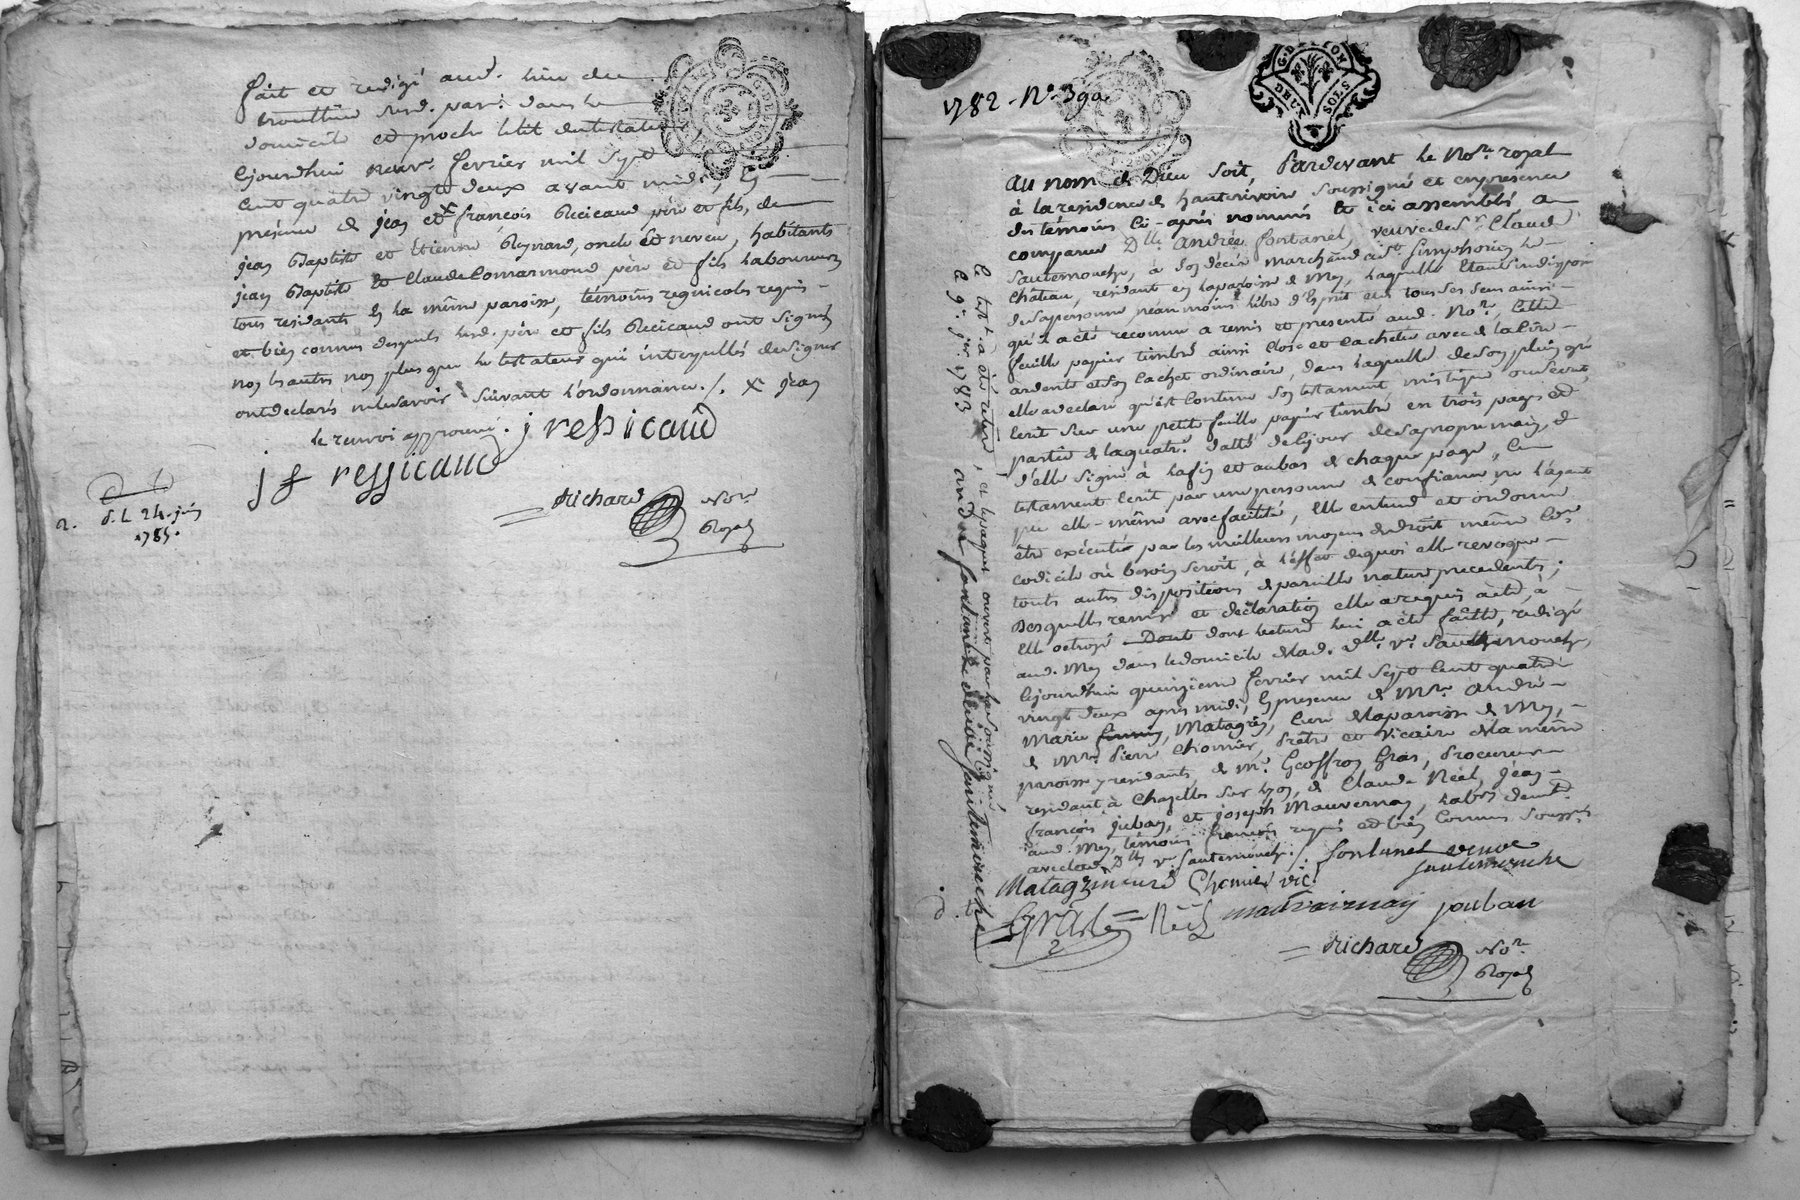 fait et redigé aud. lieu de
susd. par. dans le
domicile et proche le lit du testateur,
cejourdhui neuf fevrier mil sept
cent quatre vingt deux avant midi, en
présence de jean et x françois Recicaud père et fils, de
jean Baptiste et Etienne Reynard, oncle et neveu, habitants
jean Baptiste et Claude Commarmond père et fils laboureurs
tous residants en la même paroisse, témoins regnicoles requis
et bien connus desquels lesd. père et fils Recicaud ont signé
non les autres non plus que le testateur qui interpellés de signer
ont declaré ne le savoir suivant l'ordonnance ./. x jean
le renvoi approuvé. j ressicaud
j f ressicaud
Richard No.re
Royal
d. L. 24 juin
1785.
1782 - No. 390
G. DE LYON
DEUX SOLS
Au nom de Dieu soit, Pardevant le No.re royal
à la residence de hauterivoire soussigné et en presence
des témoins ci-après nommés et ici assemblés a
comparu D.lle andrée fontanel, veuve de S.r Claude
Sautemouche, à son décès marchand à S.t Simphorien le
Château, residant en la paroisse de Mey, laquelle étant indisposée
de sa personne néanmoins libre d'Esprit et de tous ses sens ainsi
qu'il a été reconnu a remis et presenté aud. No.re, cette
feuille papier timbré ainsi close et cachetée avec de la cire
ardente et son cachet ordinaire, dans laquelle de son plein gré
elle a declaré qu'est contenu son testament mistique ou secret,
écrit sur une petite feuille papier timbré en trois pages et
partie de la quatr.e datté de ce jour de sa propre main, et
d'elle signé à la fin et au bas de chaque page, ce
testament écrit par une personne de confiance, ne l'ayant
pu elle-même avec facilité, elle entend et ordonne
être exécuté par les meilleurs moyens de droit même de
codicile où besoin seroit, à l'effet de quoi elle revoque
touts autres dispositions de pareille nature precedentes;
Desquelles remise et déclaration elle a requis acte, à
elle octroyé Dont dont lecture lui a été faitte, redigé
aud. Mey dans le domicile de lad. D.lle v.e Sautemouche,
cejourdhui quinzieme fevrier mil sept cent quatre
vingt deux après midi, en presence de M.re André
Marie Matagrin, curé de la paroisse de Mey,
de M.re Pierre Chomier, Prêtre et Vicaire de la même
paroisse y residants, de M.e Geoffroy Gras, Procureur
residant à Chazelles sur Lyon, de Claude Néel, jean
françois juban, et joseph Mauvernay, habit.s dud.
aud. Mey, témoins françois requis et bien connus souss.és
avec lad. D.lle v.e Sautemouche ./. fontanel veuve
sautemouche
Matagrin curé Chomier vic.
Gras = Néel mauvairnay jouban
Richard No.re
Royal
le test. a été retiré, et le paquet ouvert par la soussigné
le 9 j.er 1783 andrée fontanel veuve sautemouche